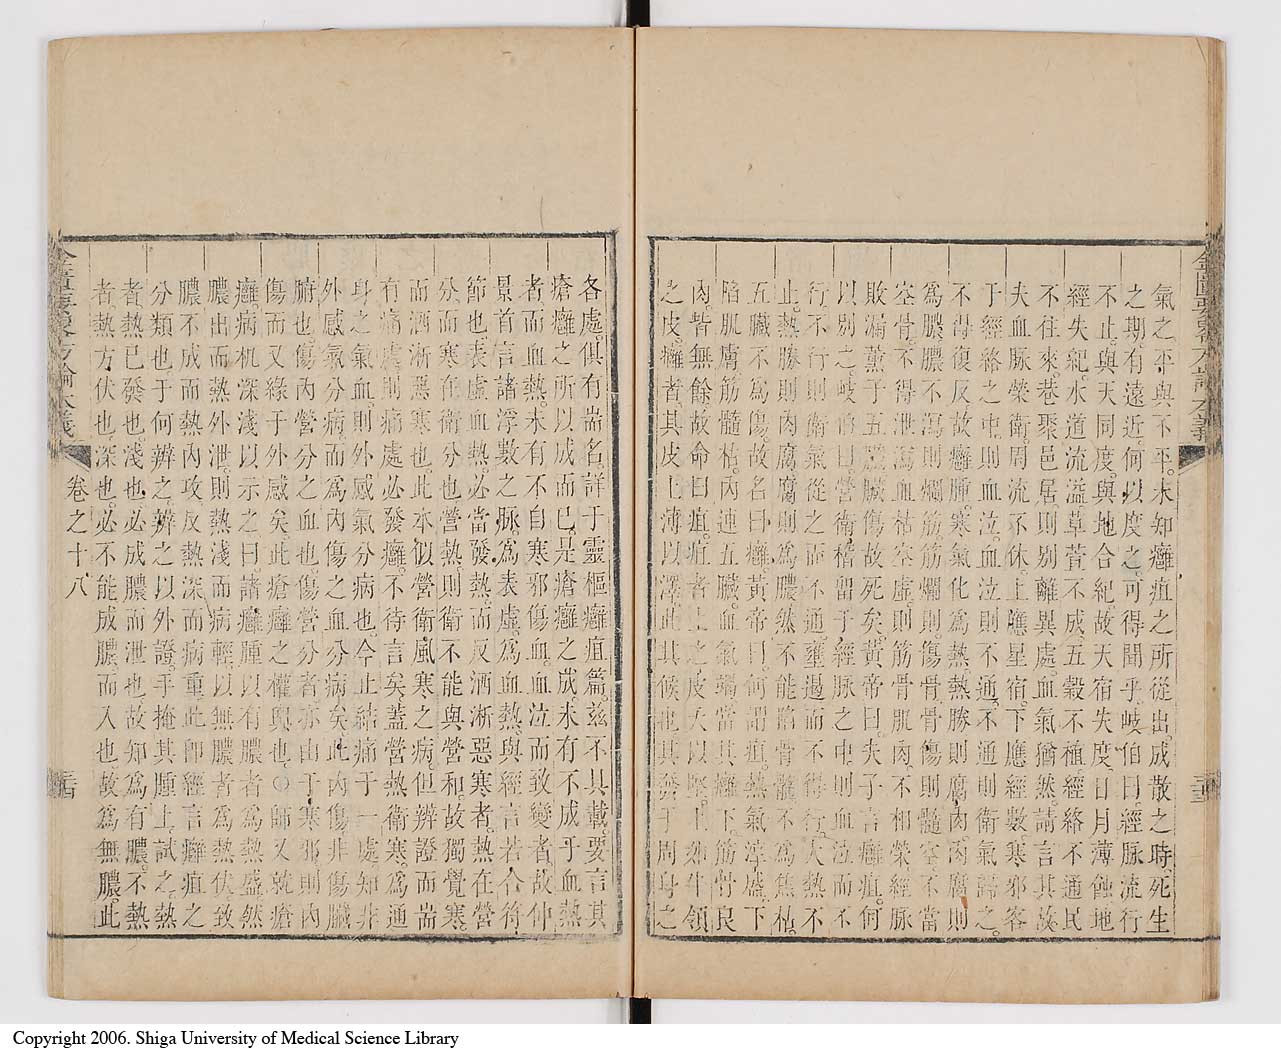 氣之平與不平。未知癰疽之所從出。成散之時。死生
之期。有遠近。何以度之。可得聞乎。岐伯曰。經脈流行
不止。與天同度。與地合紀。故天宿失度。日月薄蝕。地
經失紀。水道流溢。草萱不成。五穀不植。經絡不通。民
不往來。巷聚邑居。則別離異處。血氣猶然。請言其故。
夫血脈榮衛。周流不休。上應星宿。下應經數。寒邪客
于經絡之中。則血泣。血泣則不通。不通則衛氣歸之。
不得復反。故癰腫。寒氣化為熱。熱勝則腐肉。肉腐則
為膿。膿不瀉。則爛筋。筋爛則傷骨。骨傷則髓空。不當
空骨。不得泄瀉。血枯空虛。則筋骨肌肉不相榮。經脈
敗漏。薰于五臟。臟傷故死矣。黃帝曰。夫子言癰疽。何
以別之。岐伯曰。營衛稽留于經脈之中。則血泣而不
行。不行則衛氣從之而不通。壅遏而不得行。大熱不
止。熱勝則肉腐。腐則為膿。然不能陷骨髓。不為焦枯。
五臟不為傷。故名曰癰。黃帝曰。何謂疽。熱氣淳盛。下
陷肌膚。筋髓枯。內連五臟。血氣竭。當其癰下。筋骨良
肉。皆無餘。故命曰疽。疽者。上之皮夭以堅。上如牛領
之皮。癰者。其皮上薄以澤。此其候也。其發于周身之
各處。俱有耑名。詳于靈樞癰疽篇。茲不具載。要言其
瘡癰之所以成而已。是瘡癰之成。未有不成乎血熱
者。而血熱。未有不自寒邪傷血。血泣而致變者。故仲
景首言諸浮數之脈。為表虛。為血熱。與經言若合符
節也。表虛血熱。必當發熱。而反洒淅惡寒者。熱在營
分。而寒在衛分也。營熱則衛不能與營和。故獨覺寒。
而洒淅惡寒也。此本似營衛風寒之病。但辨證而耑
有痛處。則痛處必發癰。不待言矣。蓋營熱衛寒。為通
身之氣血。則外感氣分病也。今止結痛于一處。知非
外感氣分病。而為內傷之血分病矣。此內傷非傷臟
腑也。傷內營分之血也。傷營分者。亦由于寒邪。則內
傷而又緣于外感矣。此瘡癰之權輿也。○師又就瘡
癰病机深淺以示之。曰諸癰腫以有膿者為熱盛。然
膿出而熱外泄。則熱淺而病輕。以無膿者為熱伏。致
膿不成。而熱內攻。反熱深而病重。此卽經言癰疽之
分類也。于何辨之。辨之以外證。手掩其腫上試之。熱
者。熱已發也。淺也。必成膿而泄也。故知為有膿。不熱
者。熱方伏也。深也。必不能成膿而入也。故為無膿。此
金匱要略方論本義
卷之十八
三十三
三十四
Copyright 2006. Shiga University of Medical Science Library